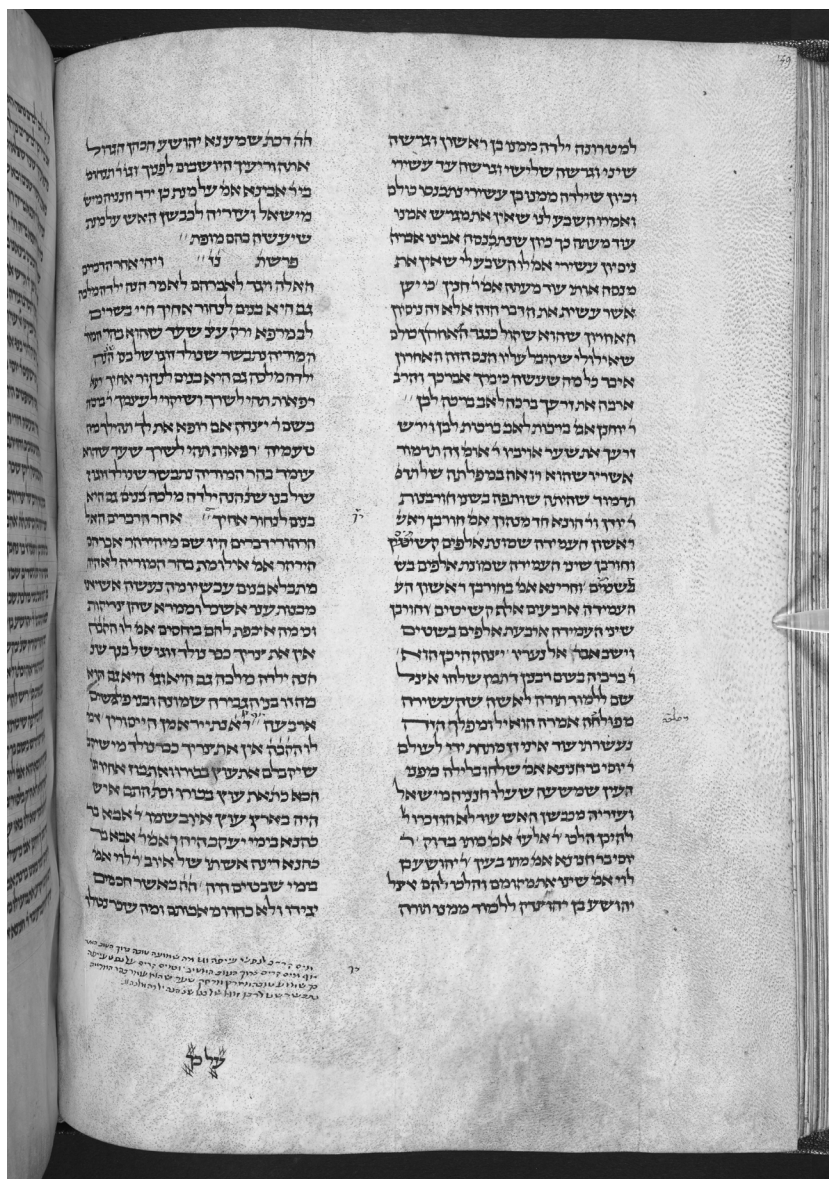 למטרונה ילדה ממנו בן ראשון וגרשה
שיני וגרשה שלישי וגרשה עד עשירי
וכיון שילדה ממנו בן עשירי נתכנסו כולם
ואמרו השבע לנו שאין את מגרש אמנו
עוד מעתה כך כיון שנתנסה אבינו אברה׳
ניסיון עשירי אמ׳ לו השבע לי שאין את
מנסה אותי עוד מעתה אמ׳ ר׳ חנין כי יען
אשר עשית את הדבר הזה אלא זה ניסיון
האחרון שהוא שקול כנגד האחרון כולם
שאילולי שקיבל עליו הנס הזה האחרון
איבד כל מה שעשה כי ברך אברכך והרב׳
ארבה את זרעך ברכה לאב ברכה לבן
ר׳ יוחנן אמ׳ ברכות לאב ברכות לבן וירש
זרעך את שער אויביו ר׳ אומ׳ זה תדמור
אשריו שהוא רואה במפלתה של תד׳
תדמור שהיתה שותפה בשני חורבנות
ר׳ יודן ור׳ הונא חד מנהון אמ׳ חורבן ראש׳
ראשון העמידה שמונת אלפים קשיטין
וחורבן שיני העמידה שמונת אלפים בש׳
בשטים וחרינא אמ׳ בחורבן ראשון הע׳
העמידה ארבעים אלף קשיטים וחורבן
שיני העמידה ארבעת אלפים בשטים
וישב אבר׳ אל נעריו ויצחק היכן הוא
ר׳ ברכיה בשם רבנין דתמן שלחו אצל
שם ללמוד תורה לאשה שהעשירה
מפולחה אמרה הואיל ומפלך הזה
נעשרתי עוד אינו זז מתחת ידי לעולם
ר׳ יוסי בר חנינא אמ׳ שלחו בלילה מפני
העין שמשעה שעלו חנניה מישאל
ועזריה מכבשן האש עוד לא הוזכרו ל׳
להיכן הלכו ר׳ אלעז׳ אמ׳ מתו ברוק ר׳
יוסי בר חנינא אמ׳ מתו בעין ר׳ יהושע בן
לוי אמ׳ שינו את מקומם והלכו להם אצל
יהושע בן יהוצדק ללמוד ממנו תורה
הה׳ דכת׳ שמע נא יהושע הכהן הגדול
אתה ורעיך היושבים לפניך וגו׳ ר׳ תנחום
ביר׳ אבינא אמ׳ על מנת כן ירד חנניה מיש׳
מישאל ועזריה לכבשן האש על מנת
שיעשה בהם מופת
פרשת נז׳ ויהי אחר הדברים
האלה ויגד לאברהם לאמר הנה ילדה מלכה
גם היא בנים לנחור אחיך חיי בשרים
לב מרפא ורק׳ עצ׳ עד שהוא בהר המור׳
המוריה נתבשר שנולד זוגו של בנו הנה
ילדה מלכה גם היא בנים לנחור אחיך
רפאות תהי לשרך ושיקוי לעצמיך ר׳ ברכיה
בשם ר׳ יצחק אם רופא את לך תהילך מה
טעמיה רפאות תהי לשרך שעד שהוא
עומד בהר המוריה נתבשר שנולד זוגו
של בנו שנ׳ הנה ילדה מלכה בנים גם היא
בנים לנחור אחיך אחר הדברים האל׳
הרהורי דברים היו שם מי הירהר אברהם
הירהר אמ׳ אילו מת בהר המוריה לא היה
מת בלא בנים עכשיו מה נעשה אשיאו
מבנות ענר אשכול וממרא שהן צדיקות
וכי מה איכפת להם ביחסים אמ׳ לו הק׳בה׳
אין את צריך כבר נולד זוגו של בנך שנ׳
הנה ילדה מילכה גם היא וגו׳ היא גם היא
מה זו בניה גבירה שמונה ובני פילגשים
ארבעה ד״א נתיירא מן הייסורין אמ׳
לו הק׳בה׳ אין את צריך כבר נולד מי שיה׳
שיקבלם את עוץ בכורו ואת בוז אחיו
הכא כת׳ את עוץ בכורו וכת׳ התם איש
היה בארץ עוץ איוב שמו ר׳ אבא בר
כהנא בימי יעקב היה ר׳ אמ׳ ר׳ אבא בר
כהנא דינה אשתו של איוב ר׳ לוי אמ׳
בימי שבטים היה הה׳ כאשר חכמים
יגידו ולא כחדו מאבותם ומה שכר נטלו
על כך